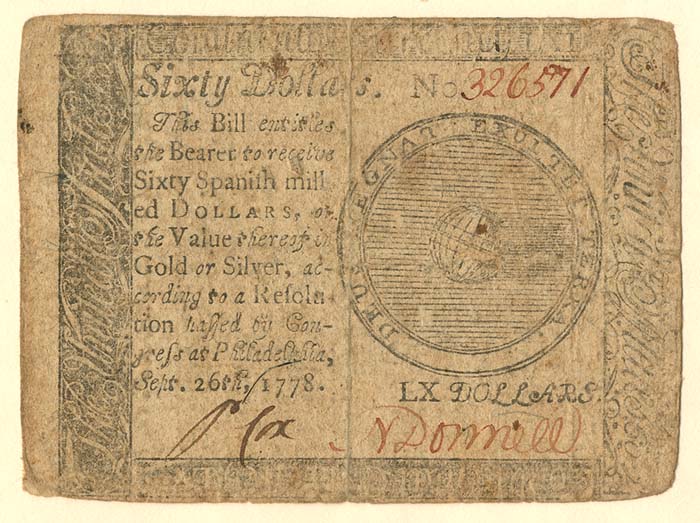 Sixty Dollars. No 326571
This Bill entitles
the Bearer to receive
Sixty Spanish mill
ed DOLLARS, or
the Value thereof in
Gold or Silver, ac-
cording to a Resolu
tion passed by Con-
gress at Philadelphia,
Sept. 26th, 1778.
DEUS REGNAT EXULTET TERRA.
LX DOLLARS.
P Cox
N Donnell